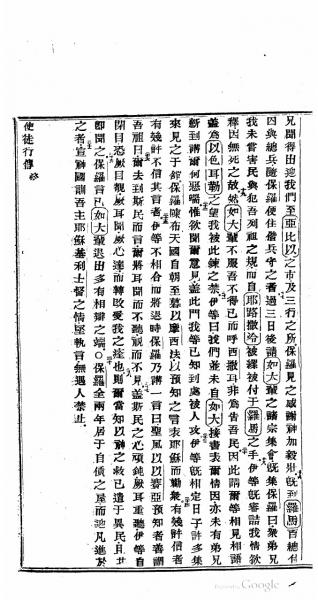 兄聞得出迎我們至亞比以之市及三行之所保羅見之感謝神加毅卅既到羅馬百總付
囚與總兵隨保羅便住偕兵守之者過三日後請如大輩之諸宗集會既集保羅曰衆弟兄
我未嘗害民與犯吾列祖之規而自耶路撒冷被縲被付于羅馬之手伊等既審詰我情欲
釋因無死之故然如大輩不服吾不得已而呼西撒耳非為告吾民因此請爾等相見相語
蓋為以色耳勒之望我被此鍊之禁伊等曰我們並未自如大接書表爾情因亦未有弟兄
新到講爾何惡嘴惟欲聞爾意見蓋此門我等已知到處被人攻伊等既相定日子許多集
來見之于館保羅陳布天國自朝至暮以摩西法以預知之言表耶穌而勸衆有幾許信者
有幾許不信其言者伊等不相合而將退時保羅乃講一言曰聖風以以賽亞預知者善謂
吾祖曰爾去到斯民而言爾將耳聞而不聽視而不見蓋斯民之心頑鈍厥耳重聽伊等自
閉目恐厥目覩厥耳聞厥心達而轉改愛我之痊也則爾當知以神之救已遣于異民且其
即聞之保羅言已如大輩退出多有相辯之端○保羅全兩年居于自債之屋而迎凡進於
之者宣神國訓吾主耶穌基利士督之情歷執言無遇人禁止
使徒行傳 終
Google